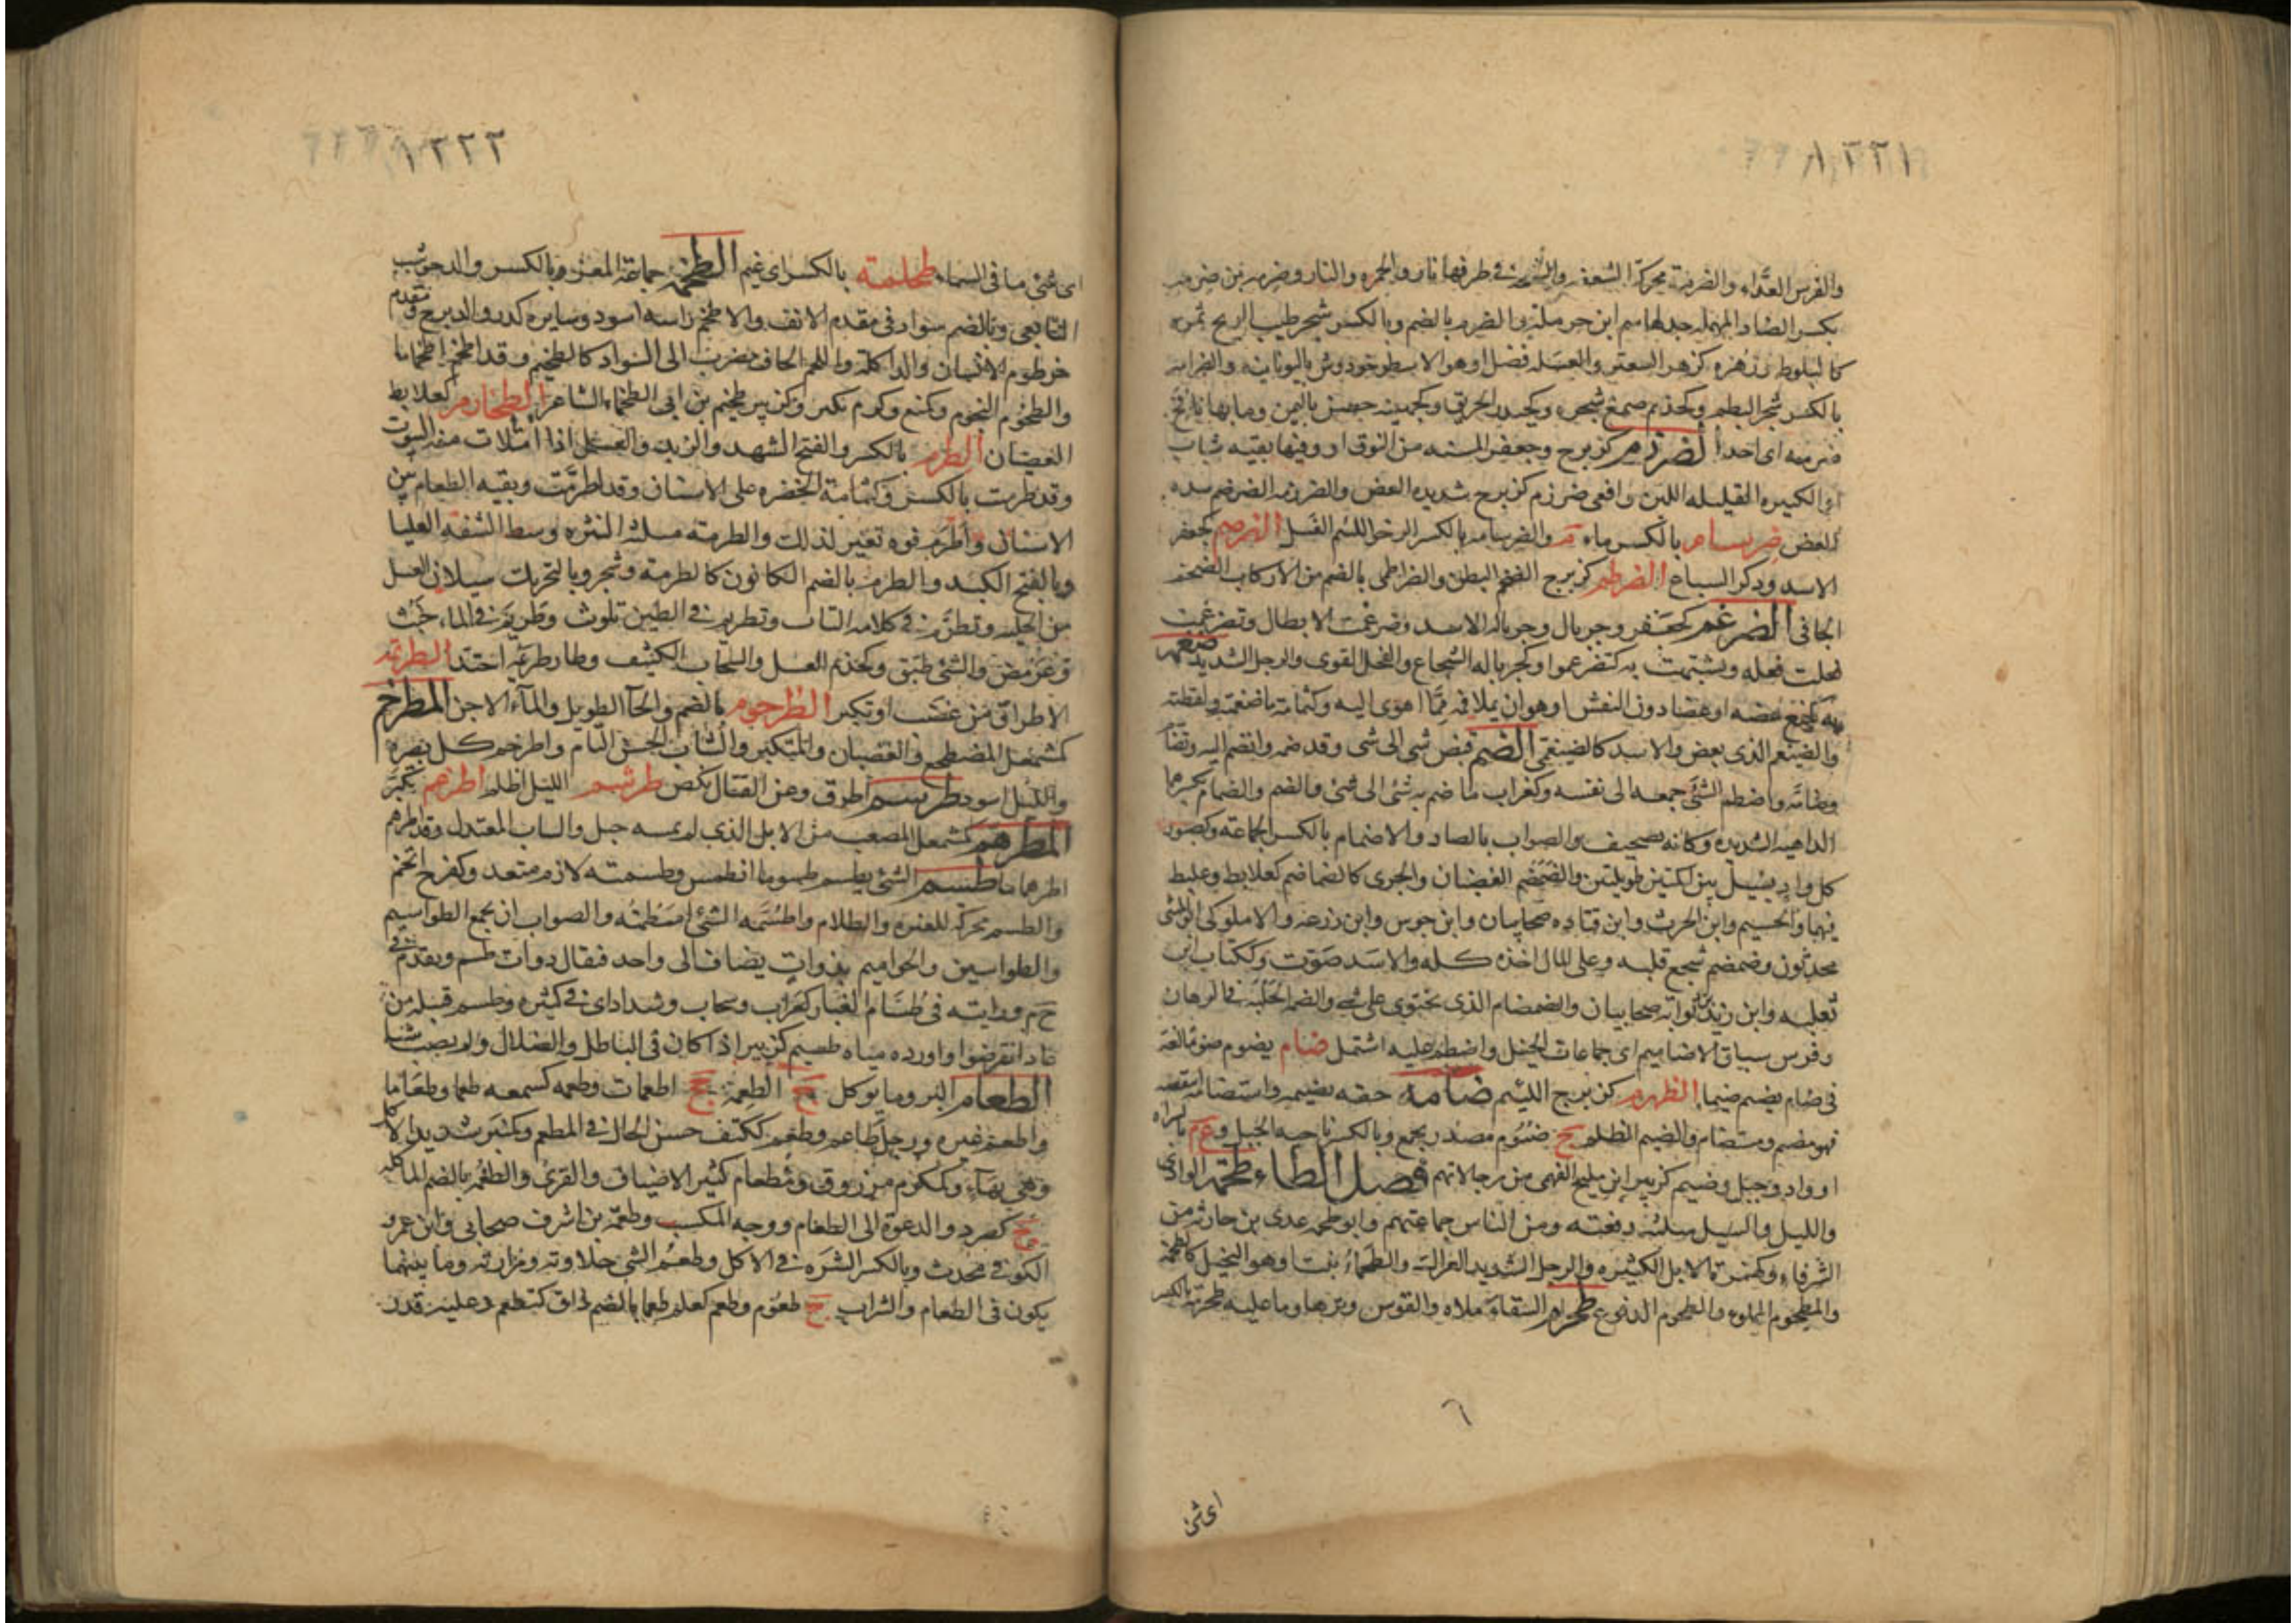 ١٢٢١
والفرس العدّاء والضرمة محركة السعفة والشيحة في طرفها نار والجمرة والنار وضرمة بن ضرمة
بكسر الصاد المهملة جد لهاشم ابن حرملة والضرم بالضم وبالكسر شجر طيب الريح ثمره
كالبلوط وزهره كزهر السعتر والعسله فضل او هو الاسطوخودوش باليونانيه والضرامه
بالكسر شجر البطم وكحذيم صمغ شجره وكحيدر الحريق وكجهينه حصن باليمن وما بها نافخ
ضرمه اى احد الضرزم كزبرج وجعفر المسنه من النوق او وفيها بقيه شباب
او الكبيره القليله اللبن وافعى ضرزم كزبرج شديده العض والضرزمه الضرضم شده
العض ضرسام بالكسر ماء م والضرسامه بالكسر الرخو اللئيم الفسل الضرصم كجعفر
الاسد وذكر السباع الضرطم كزبرج الضخم البطن والضراطمى بالضم من الاركاب الضخم
الجافى الضرغم كجعفر وجريال وجرباله الاسد وضرغمت الابطال وتضرغمت
فعلت فعله وتشبهت به كتضرغموا وكجرباله الشجاع والفحل القوى والرجل الشديد ضغمه
به كمنع عضه او عضا دون النهش او هو ان يملا فمه مما اهوى اليه وكثمامة ما ضغمته ولفظته
والضيغم الذى يعض والاسد كالضيغمى الضم قبض شى الى شى وقد ضمه وانضم اليه وتضام
وضامّه واضطم الشئ جمعه الى نفسه وكغراب ما ضم به شئ الى شئ والضم والضمام بكسرهما
الداهيه الشديده وكانه تصحيف والصواب بالصاد والاضمام بالكسر الجماعه وكصبور
كل واد يسيل بين اكمتين طويلتين والضمضم الغضبان والجرى كالضماضم كعلابط وعلبط
فيهما والجسيم وابن الحرث وابن قتاده صحابيان وابن جوس وابن زرعه والاملوكى
محدثون وضمضم شجع قلبه وعلى المال اخذه كله والاسد صوّت وككتاب ابن
ثعلبه وابن زيد بن ثوابه صحابيان والضمضام الذى يحتوى على شئ والضمه الحلبة فى الرهان
وفرس سباق الاضاميم اى جماعات الخيل واضطم عليه اشتمل ضام يضوم ضوما لغة
فى ضام يضيم ضيما الظهرم كزبرج اللئيم ضامه حقه يضيمه واستضامه انتقصه
فهو مضيم ومستضام والضيم الظلم ج ضيوم مصدر يجمع وبالكسر ناحيه الجبل و ع م بالسراه
او واد وجبل وضيم كزبير ابن مليح الفهمى من رجالاتهم فصل الطاء طحمه الوادى
والليل والسيل مثلثه دفعته ومن الناس جماعتهم وابو طحمه عدى بن حارثه من
الشرفاء وكهمزة الابل الكثيره والرجل الشديد العراك والطحماء نبت او هو النجيل كالطحمه
والمطحوم المملوء والطحوم الدفوع طحرم السقاء ملاه والقوس وترها وما عليه طحرمة بالكسر
٦
اى شئ
١٢٢٢
اى شئ ما فى السماء طحلمته بالكسر اى غيم الطخمة جماعة المعز وبالكسر والد حوشب
التابعى وبالضم سواد فى مقدم الانف والاطخم راسه اسود وسايره كدر والديزج ومقدم
خرطوم الانسان والداكلة واللحم الجاف يضرب الى السواد كالطخيم وقد اطخم اطخماما
والطخوم التخوم وكمنع وكرم تكبر وكزبير طخيم بن ابى الطخماء الشاعر الطخارم كعلابط
الغضبان الطرم بالكسر والفتح الشهد والزبد والعسل اذا امتلات منه البيوت
وقد طرمت بالكسر وكثمامة الخضره على الاسنان وقد اطرمت وبقيه الطعام بين
الاسنان واطرم فوه تغير لذلك والطرمة مثلثه النثره وسط الشفه العليا
وبالفتح الكبد والطرمه بالضم الكانون كالطرمه وشجر وبالتحريك سيلان العسل
من الخليه وتطرم فى كلامه التاث وتطريم فى الطين تلوث وطريم فى الماء خبث
وغرمض والشئ طبق وكحذيم العسل والسحاب الكثيف وطار طريمه احتد الطرثمه
الاطراق من غضب او تكبر الطرحوم بالضم والحا الطويل والمآء الاجن المطرخم
كمشمعل المضطجع والغضبان والمتكبر والشاب الحسن التام واطرخم كل بصره
والليل اسود طرسم اطرق وعن القتال نكص طرشم الليل اظلم اطرغم تكبر
المطرهم كمشمعل المصعب من الابل الذى لم يمسه حبل والشاب المعتدل وقد اطرهم
اطرهماما طسم الشئ يطسم طسوما انطمس وطسمته لازم متعد وكفرح اتخم
والطسم محركه للغبره والظلام واطسمه الشئ اسطمته والصواب ان يجمع الطواسيم
والطواسين والحواميم بذوات يضاف الى واحد فيقال ذوات طسم ويقدم فى
ح م ورايته فى طسام الغبار كغراب وسحاب وشداد اى فى كثيره وطسم قبيله من
عاد انقرضوا واورده مياه طسيم كزبير اذا كان فى الباطل والضلال ولم يصب شيئا
الطعام البر وما يوكل ج اطعمة جج اطعمات وطعمه كسمعه طعما وطعاما
واطعم غيره ورجل طاعم وطعم ككتف حسن الحال فى المطعم وكمنبر شديد الاكل
وهى بهاء وكمكرم مرزوق ومطعام كثير الاضياف والقرى والطعمه بالضم الماكله
ج كصرد والدعوة الى الطعام ووجه المكسب وطعمة بن اشرف صحابى وابن عمرو
الكوفى محدث وبالكسر الشره فى الاكل وطعم الشئ حلاوته ومرارته وما بينهما
يكون فى الطعام والشراب ج طعوم وطعم كعلم طعما بالضم ذاق كتطعم وعليه قدر